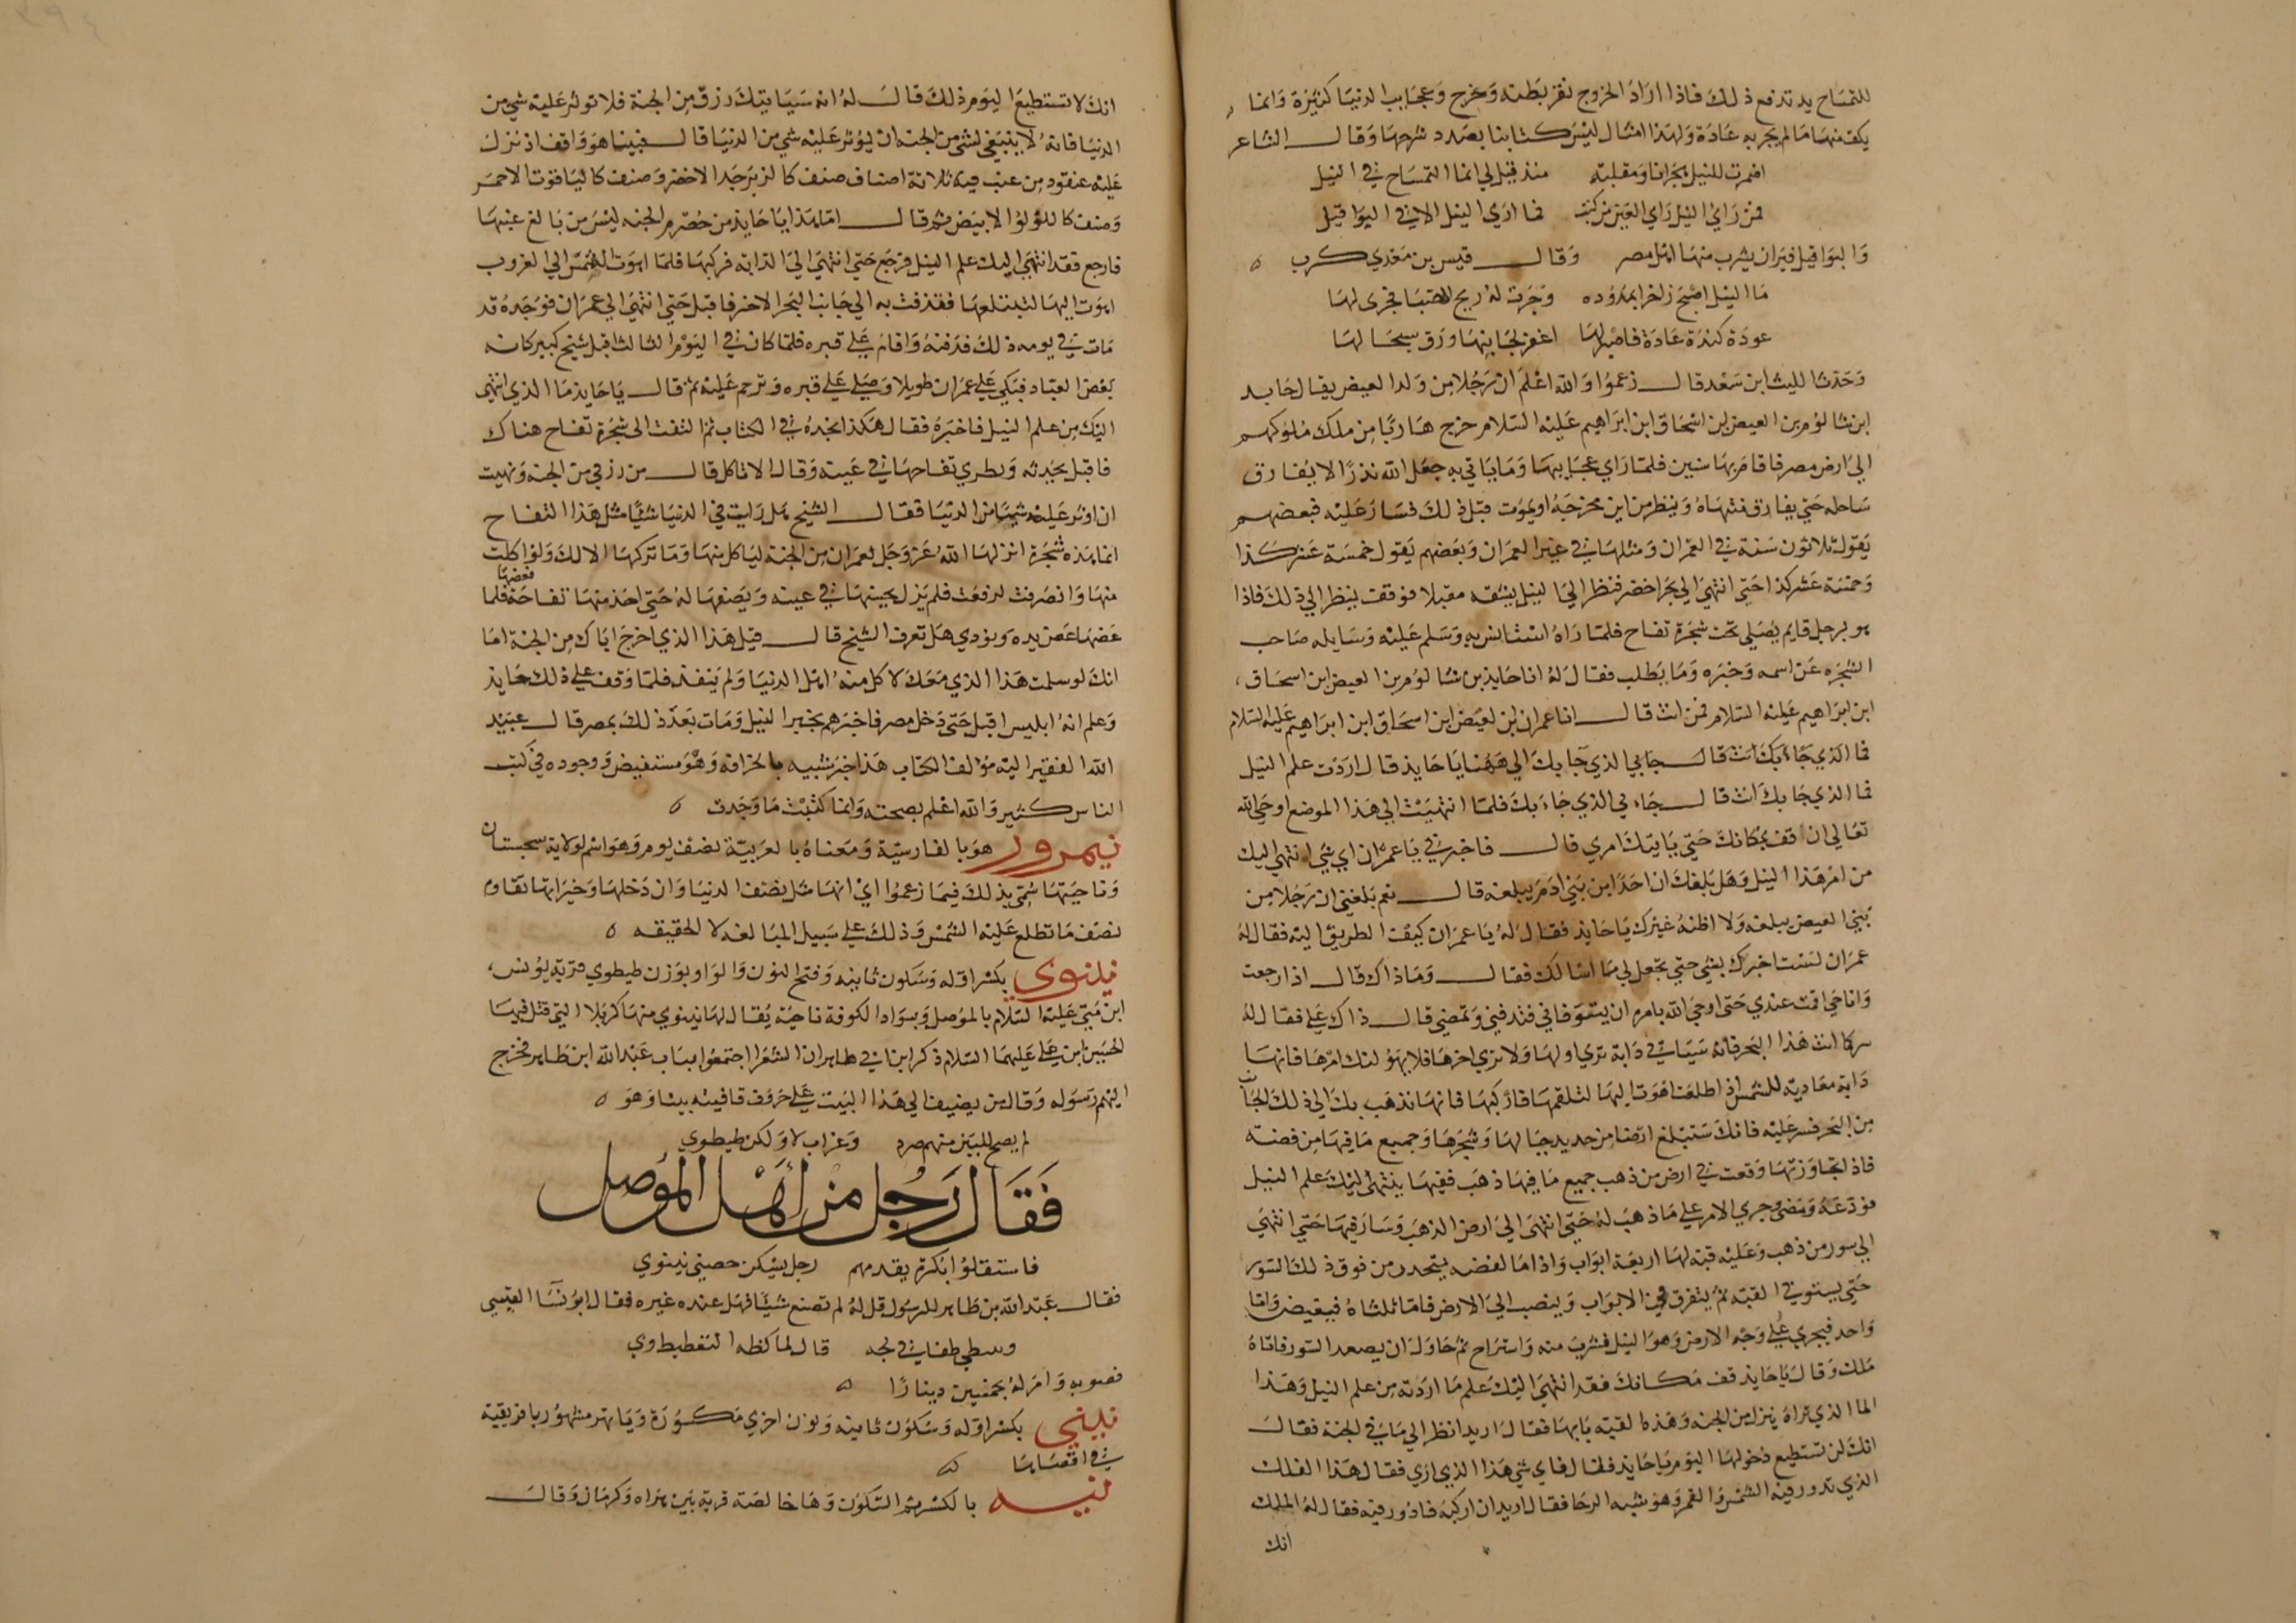 للتمساح يد تدفع ذلك فاذا اراد الخروج نقر بطنه وخرج وعجايب الدنيا كثيرة وانما
يكف منها ما لم يجر به عادة ولهذا امثال ليس كتابنا بصدد شرحها وقال الشاعر
اضمرت للنيل هجرانا ومقلبة منذ قيل لي انما التمساح في النيل
فمن راي النيل راي العين من كتب فما اري النيل الا في البواقيل
والبواقيل فيران يشرب منها اهل مصر وقال قيس بن معدي كرب
ما النيل اصبح زاخرا بمدوده وجرت له ريح الصبا فجرى لها
عودة كندة عادة فاصبر لها اغفر لجانبها ورق سجالها
وحدثنا الليث ابن سعد قال زعموا والله اعلم ان رجلا من ولد العيص يقال له حايد
ابن شالوم بن العيص ابن اسحاق ابن ابراهيم عليه السلام خرج هاربا من ملك من ملوكهم
الي ارض مصر فاقام بها سنين فلما راي عجايبها وما ياتي به جعل الله نذرا لا يفارق
ساحله حتي يفارق منتهاه وينظر من اين مخرجه او يموت قبل ذلك فسار عليه فبعضهم
يقول ثلاثون سنة في العمران ومثلها في غير العمران وبعضهم يقول خمسة عشر كذا
وخمسة عشر كذا حتي انتهي الي بحر اخضر فنظر الي النيل يشقه مقبلا فوقف ينظر الي ذلك فاذا
هو برجل قايم يصلي تحت شجرة تفاح فلما راه استانس به وسلم عليه وسايله صاحب
الشجره عن اسمه وخبره وما يطلب فقال له انا حايذ بن شالوم بن العيص ابن اسحاق
ابن ابراهيم عليه السلام فمن انت قال انا عمران ابن العيص ابن اسحاق ابن ابراهيم عليه السلام
فما الذي جاء بك انت قال جا بي الذي جا بك الي ههنا يا حايذ قال اردت علم النيل
فما الذي جا بك انت قال جاء بي الذي جاء بك فلما انتهيت الي هذا الموضع اوحي الله
تعالي ان قف مكانك حتي ياتيك امري قال فاخبرني يا عمران اي شي انتهي اليك
من امر هذا النيل وهل بلغك ان احدا من بني ادم يبلغه قال نعم بلغني ان رجلا من
بني العيص يبلغه ولا اظنه غيرك يا حايذ فقال له يا عمران كيف الطريق اليه فقال له
عمران لست اخبرك بشي حتي تجعل لي ما اسالك فقال وما ذاك قال اذا رجعت
وانا حي اقت عندي حتي اوحي الله بامره ان يتوفاني فتدفني وتمضي قال ذاك علي فقال له
سر كما انت هذا البحر فانه سياتي دابة تري اولها ولا تري اخرها فلا يهولنك امرها فانها
دابة معادية للشمس اذا طلعت اهوت اليها لتلقمها فاركبها فانها تذهب بك الي ذلك الجانب
من البحر فسر عليه فانك ستبلغ ارضا من حديد جبالها وشجرها وجميع ما فيها من فضة
فاذا تجاوزتها وقعت في ارض من ذهب جميع ما فيها ذهب ففيها ينتهي اليك علم النيل
فودعه ومضي وجري الامر علي ما ذهب له حتي انتهي الي ارض الذهب وسار فيها حتي انتهي
الي سور من ذهب وعليه قبة لها اربعة ابواب واذا ما الفضه ينحدر من فوق ذلك السور
حتي يستوي في القبة ثم يتفرق في الابواب وينصب الي الارض فاما ثلثاه فيغيض واما
واحد فيجري علي وجه الارض وهو النيل فشرب منه واستراح ثم حاول ان يصعد السور فاتاه
ملك وقال يا حايذ قف مكانك فقد انتهي اليك علم ما اردته من علم النيل وهذا
الما الذي تراه ينزل من الجنة وهذه القبة بابها فقال اريد انظر الي ما في الجنة فقال
انك لن تستطيع دخولها اليوم يا حايذ فقال فاي شي هذا الذي اري فقال هذا الفلك
الذي تدور فيه الشمس والقمر وهو شبه الرحا فقال اريد ان اركبه فادور فيه فقال له الملك
انك
انك لا تستطيع اليوم ذلك قال له انه سياتيك رزق من الجنة فلا توثر عليه شي من
الدنيا فانه لا ينبغي لشي من الجنة ان يوثر عليه شي من الدنيا قال فبينا هو واقف اذ نزل
عليه عنقود من عنب فيه ثلاثة اصناف صنف كالزبرجد الاخضر وصنف كالياقوت الاحمر
وصنف كاللؤلؤ الابيض ثم قال اما هذا يا حايذ من حصرم الجنه ليس من بالغ عنبها
فارجع فقد انتهي اليك علم النيل فرجع حتي انتهي الي الدابه فركبها فلما اهوت الشمس الي الغروب
اهوت اليها لتبتلعها فقذفت به الي جانب البحر الاخر فاقبل حتي انتهي الي عمران فوجده قد
مات في يومه ذلك فدفنه واقام علي قبره فلما كان في اليوم الثالث اقبل شيخ كبير كانه
بعض العباد فبكي علي عمران طويلا وصلي علي قبره وترحم عليه ثم قال يا حايذ ما الذي انتهي
اليك من علم النيل فاخبره فقال هكذا نجده في الكتاب ثم التفت الي شجرة تفاح هناك
فاقبل يحدثه ويطري تفاحها في عينه وقال الا تاكل قال من رزقي من الجنه ونهيت
ان اوثر عليه شيا من الدنيا فقال الشيخ هل رايت في الدنيا شيا مثل هذا التفاح
انما هذه شجرة انزلها الله عز وجل لعمران من الجنة لياكل منها وما تركها الا لك ولو اكلت
منها وانصرفت لرفعت فلم يزل يحسنها في عينه ويصفها له حتي اخذ منها تفاحة فعضها فلما
عضها عض يده ونودي هل تعرف الشيخ قال قيل هذا الذي اخرج اباك من الجنة اما
انك لو سلمت هذا الذي معك لاكل منه اهل الدنيا ولم ينفد فلما وقف علي ذلك حايذ
وعلم انه ابليس اقبل حتي دخل مصر فاخبرهم بخبر النيل ومات بعد ذلك بمصر قال عبيد
الله الفقير اليه مؤلف الكتاب هذا خبر شبيه بالخرافه وهو مستفيض ووجوده في كتب
الناس كثير والله اعلم بصحته وانما كتبت ما وجدت
نيمروز هو بالفارسية ومعناه بالعربية نصف يوم وهو اسم لولاية سجستان
وناحيتها سمي بذلك فيما زعموا اي انها مثل نصف الدنيا وان دخلها وخيراتها تقاوم
نصف ما تطلع عليه الشمس وذلك علي سبيل المبالغه لا الحقيقه
نينوي بكسر اوله وسكون ثانيه وفتح النون والواو بوزن طيطوي قرية يونس
ابن متي عليه السلام بالموصل وبسواد الكوفة ناحية يقال لها نينوي منها كربلا التي قتل فيها
الحسين ابن علي عليهما السلام ذكر ابن ابي طاهر ان الشعرا اجتمعوا بباب عبد الله ابن طاهر فخرج
اليهم رسوله وقال من يضيف الي هذا البيت علي حروف قافيته بيتا وهو
لم يصح للبين منهم صرد وغراب لا ولكن طيطوي
فقال رجل من اهل الموصل
فاستقلوا بكرة يقدمهم رجل يسكن حصني نينوي
فقال عبد الله بن طاهر للرسول قل له لم تصنع شيئا فهل عنده غيره فقال ابو سنا القيسي
وبنبطي طفا في لجه قال لما كظه التغطيط وي
فصوبه وامر له بخمسين دينارا
نيني بكسر اوله وسكون ثانيه ونون اخري مكسورة ويا نهر مشهور بافريقية
في اقصاها
نيه بالكسر ثم السكون وها خالصة قرية بين هراه وكرمان وقال